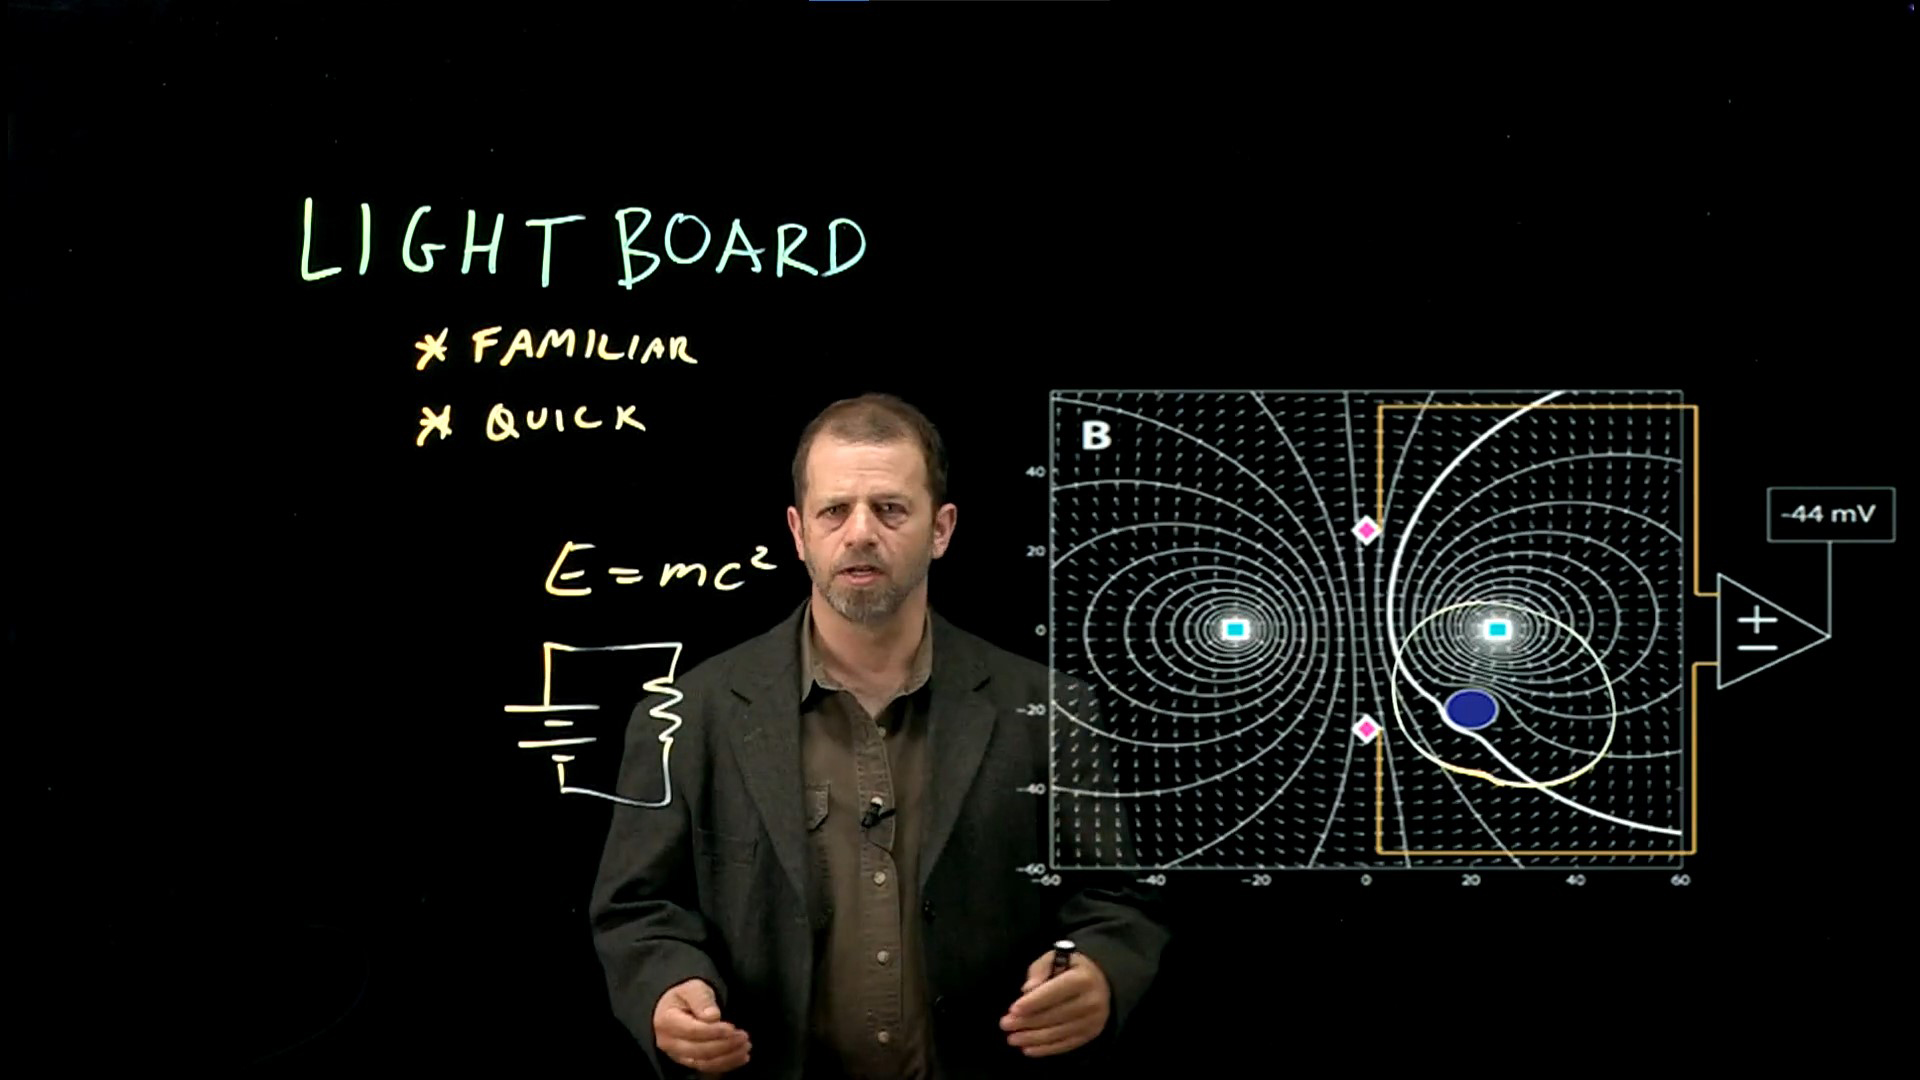 LIGHTBOARD
* FAMILIAR
* QUICK
E = mc²
B
40
20
0
-20
-40
-60
-60 -40 -20 0 20 40 60
-44 mV
+
−